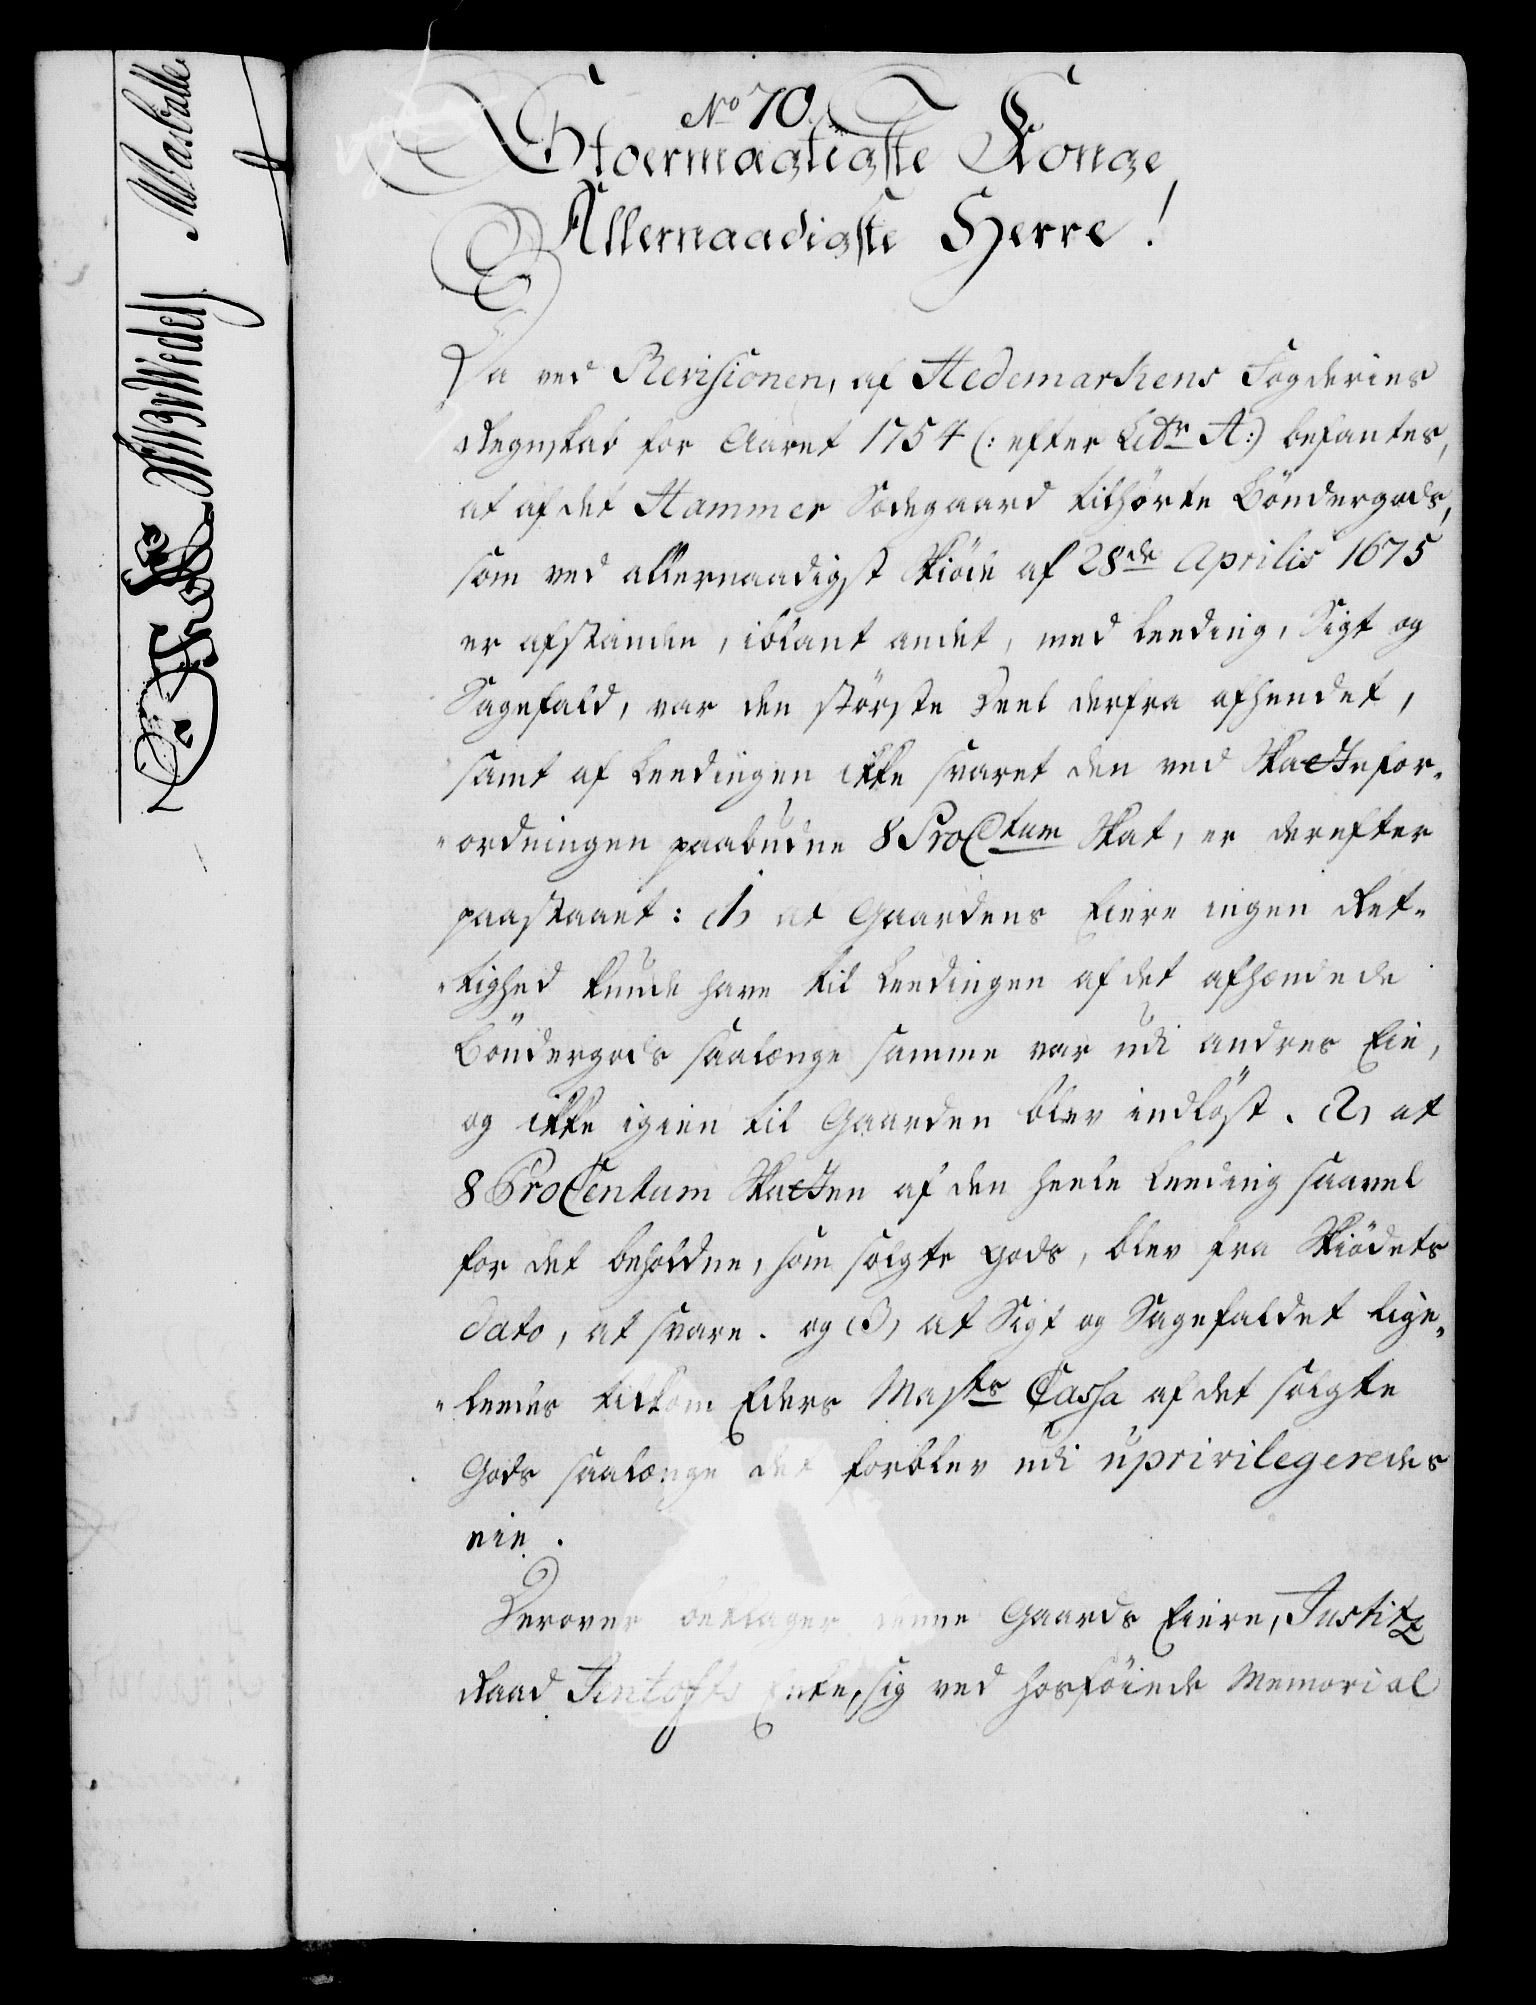 No 70.
Stoermægtigste Konge
Allernaadigste Herre!
Da ved Revisionen, af Hedemarkens Fogderies
Regnskab for Aaret 1754 (: efter Litr A:) befantes,
at af det Hammer Sædegaard tilhörte Böndergods,
som ved allernaadigst Skiöde af 28de Aprilis 1675
er afstanden, iblant andet, med Leeding, Sigt og
Sagefald, var den störste Deel derfra afhendet,
samt af Leedingen ikke svaret den ved Skattefor-
-ordningen paabudne 8 ProCtum Skat, er derefter
paastaaet: 1, at Gaardens Eiere ingen Ret-
-tighed kunde have til Leedingen af det afhændede
Böndergods saalænge samme var udi andres Eie,
og ikke igien til Gaarden blev indlöst. 2, at
8 ProCentum Skatten af den heele Leeding saavel
for det beholdne, som solgte Gods, blev fra Skiödets
dato, at svare. og 3, at Sigt og Sagefaldet lige-
-leedes tilkom Eders Majts Cassa af det solgte
Gods saalænge det forblev udi uprivilegeredes
eie.
Derover beklager denne Gaards Eiere, Justitz
Raad Jentofts Enke, sig ved hosföiede Memorial